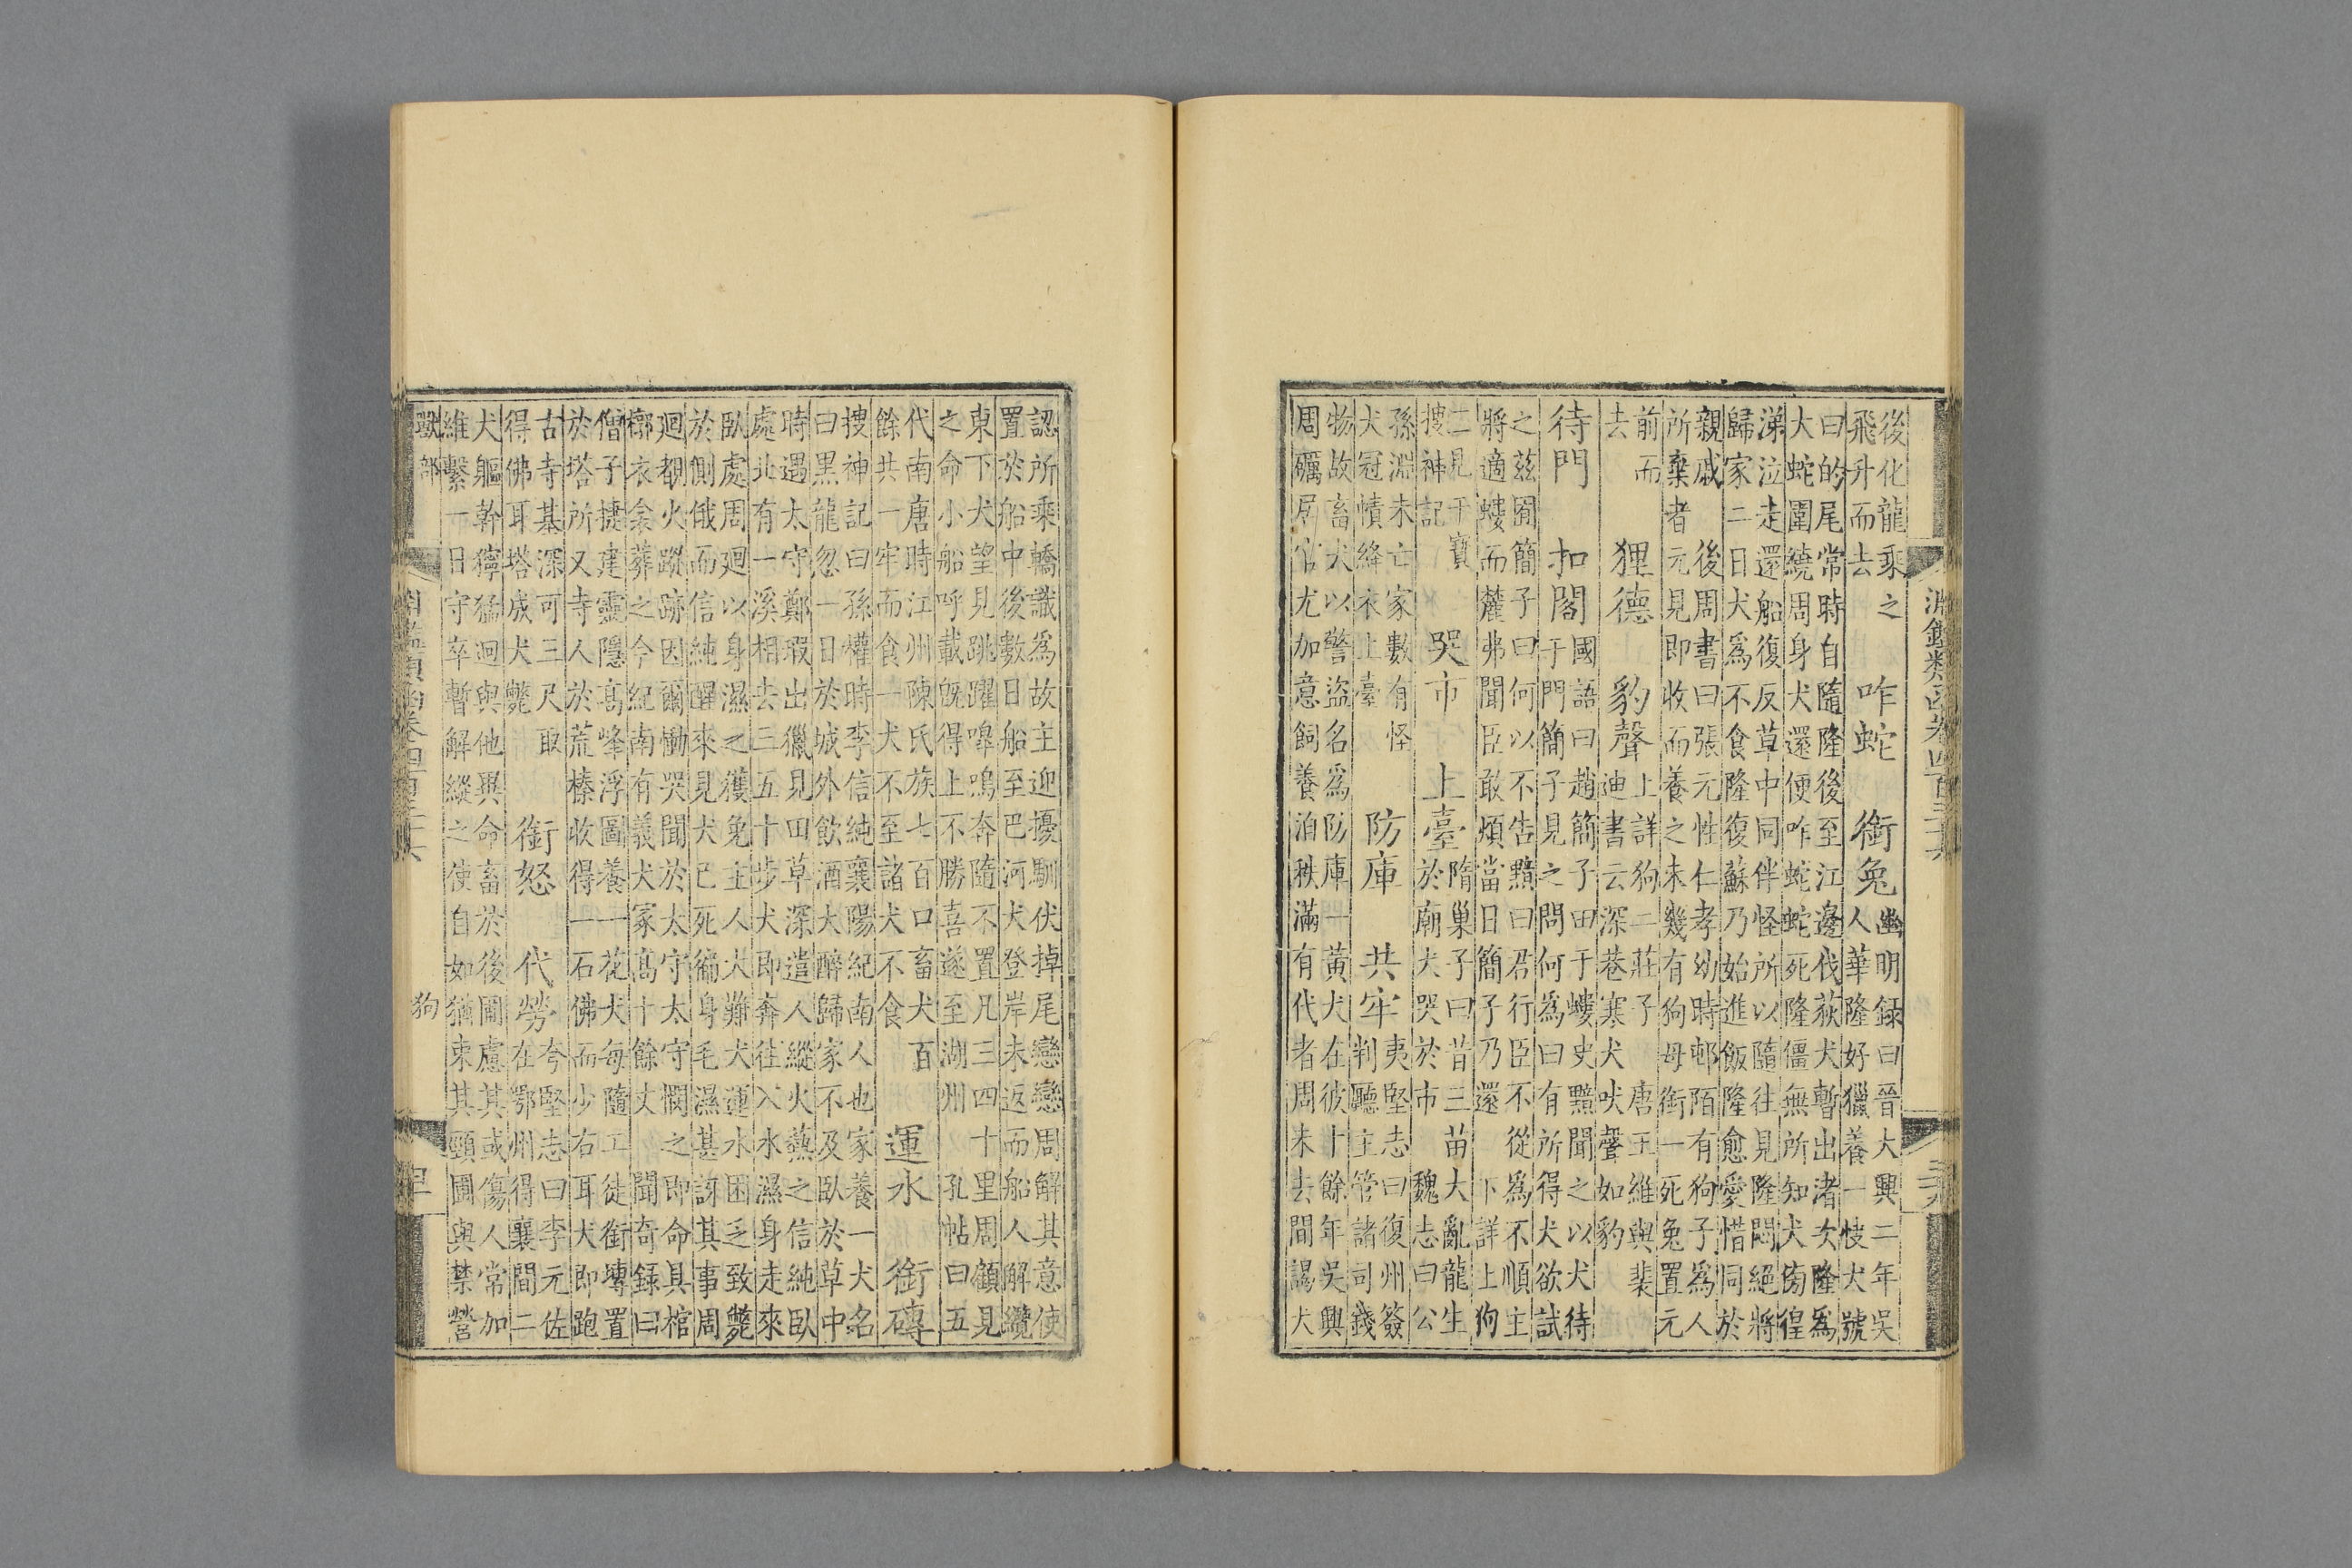 淵鑑類函卷四百三十六
後化龍乘之
飛升而去
咋蛇 銜兔
幽明録曰晉大興二年吳
人華隆好獵養一快犬號
曰的尾常時自隨隆後至江邊伐荻犬暫出渚女隆為
大蛇圍繞周身犬還便咋蛇蛇死隆僵無所知犬徬徨
涕泣走還船復反草中同伴怪所以隨往見隆悶絕將
歸家二日犬為不食隆復蘇乃始進飯隆愈愛惜同於
親戚 後周書曰張元性仁孝幼時邨陌有狗子為人
所棄者元見即收而養之未幾有狗母銜一死兔置元
前而
去
狸德 豹聲
上詳狗二莊子 唐王維與裴
迪書云深巷寒犬吠聲如豹
待門 扣閣
國語曰趙簡子田于螻史黯聞之以犬待
于門簡子見之問何為曰有所得犬欲試
之茲囿簡子曰何以不告黯曰君行臣不從為不順主
將適螻而麓弗聞臣敢煩當日簡子乃還 下詳上狗
二見干寶
搜神記
哭市 上臺
隋巢子曰昔三苗大亂龍生
於廟犬哭於市 魏志曰公
孫淵未亡家數有怪
犬冠幘絳衣上臺
防庫 共牢
夷堅志曰復州簽
判廳主管諸司錢
物故畜犬以警盜名為防庫一黃犬在彼十餘年吳興
周礪居官尤加意飼養洎秩滿有代者周未去間謁犬
認所乘轎識為故主迎擾馴伏掉尾戀戀周解其意使
置於船中後數日船至巴河犬登岸未返而船人解纜
東下犬望見跳躍嘷鳴奔隨不置凡三四十里周顧見
之命小船呼載既得上不勝喜遂至湖州 孔帖曰五
代南唐時江州陳氏族七百口畜犬百
餘共一牢而食一犬不至諸犬不食
運水 銜磚
搜神記曰孫權時李信純襄陽紀南人也家養一犬名
曰黑龍忽一日於城外飲酒大醉歸家不及臥於草中
時遇太守鄭瑕出獵見田草深遣人縱火爇之信純臥
處北有一溪相去三五十步犬即奔往入水濕身走來
臥處周廻以身濕之獲免主人大難犬運水困乏致斃
於側俄而信純醒來見犬已死徧身毛濕甚訝其事周
廻覩火蹤跡因爾慟哭聞於太守太守憫之即命具棺
槨衣衾葬之今紀南有義犬冢高十餘丈 聞奇録曰
僧子捷建靈隱高峰浮圖養一花犬每隨工徒銜塼置
於塔所又寺人於荒榛收得一石佛而少右耳犬即跑
古寺基深可三尺取
得佛耳塔成犬斃
銜怒 代勞
夸堅志曰李元佐
在鄂州得襄間二
犬軀幹獰猛迥與他異命畜於後圃慮其或傷人常加
維繫一日守卒暫解縱之使自如猶束其頸圃與禁營
獸部 狗